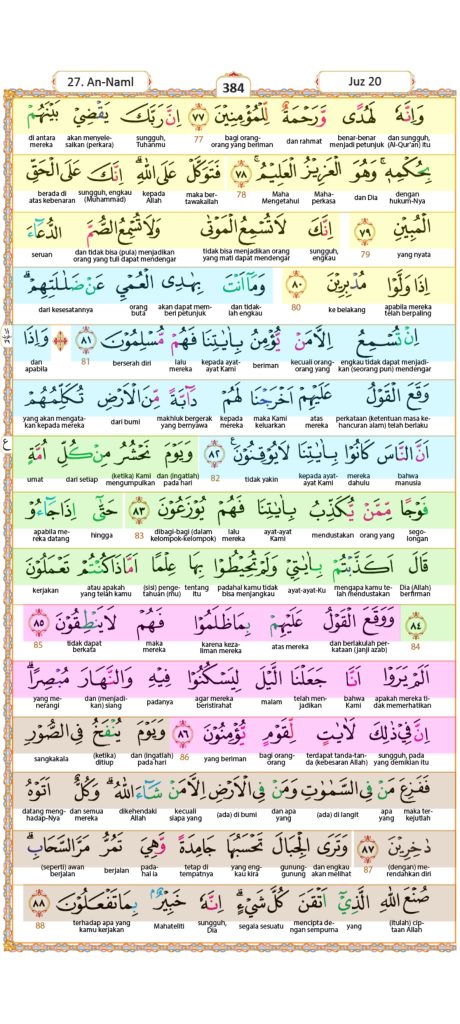 27. An-Naml
384
Juz 20
وَاِنَّهٗ لَهُدًى وَّرَحْمَةٌ لِّلْمُؤْمِنِيْنَ ٧٧ اِنَّ رَبَّكَ يَقْضِيْ بَيْنَهُمْ
dan sungguh, (Al-Qur'an) itu benar-benar menjadi petunjuk dan rahmat bagi orang-orang yang beriman 77 sungguh, Tuhanmu akan menyelesaikan (perkara) di antara mereka
بِحُكْمِهٖۚ وَهُوَ الْعَزِيْزُ الْعَلِيْمُۚ ٧٨ فَتَوَكَّلْ عَلَى اللّٰهِ ۗاِنَّكَ عَلَى الْحَقِّ
dengan hukum-Nya dan Dia Maha-perkasa Maha Mengetahui 78 maka ber-tawakallah kepada Allah sungguh, engkau (Muhammad) berada di atas kebenaran
الْمُبِيْنِ ٧٩ اِنَّكَ لَا تُسْمِعُ الْمَوْتٰى وَلَا تُسْمِعُ الصُّمَّ الدُّعَاۤءَ
yang nyata 79 sungguh, engkau tidak bisa menjadikan orang yang mati dapat mendengar dan tidak bisa (pula) menjadikan orang yang tuli dapat mendengar seruan
اِذَا وَلَّوْا مُدْبِرِيْنَ ٨٠ وَمَآ اَنْتَ بِهٰدِى الْعُمْيِ عَنْ ضَلٰلَتِهِمْۗ
apabila mereka telah berpaling ke belakang 80 dan tidak-lah engkau akan dapat mem-beri petunjuk orang buta dari kesesatannya
اِنْ تُسْمِعُ اِلَّا مَنْ يُّؤْمِنُ بِاٰيٰتِنَا فَهُمْ مُّسْلِمُوْنَ ٨١ ۞ وَاِذَا
engkau tidak dapat menjadi-kan (seorang pun) mendengar kecuali orang-orang yang beriman kepada ayat-ayat Kami lalu mereka berserah diri 81 dan apabila
وَقَعَ الْقَوْلُ عَلَيْهِمْ اَخْرَجْنَا لَهُمْ دَاۤبَّةً مِّنَ الْاَرْضِ تُكَلِّمُهُمْ
perkataan (ketentuan masa ke-hancuran alam) telah berlaku atas mereka maka Kami keluarkan kepada mereka makhluk bergerak yang bernyawa dari bumi yang akan mengata-kan kepada mereka
اَنَّ النَّاسَ كَانُوْا بِاٰيٰتِنَا لَا يُوْقِنُوْنَ ࣖ ٨٢ وَيَوْمَ نَحْشُرُ مِنْ كُلِّ اُمَّةٍ
bahwa manusia mereka dahulu kepada ayat-ayat Kami tidak yakin 82 dan (ingatlah) pada hari (ketika) Kami mengumpulkan dari setiap umat
فَوْجًا مِّمَّنْ يُّكَذِّبُ بِاٰيٰتِنَا فَهُمْ يُوْزَعُوْنَ ٨٣ حَتّٰٓى اِذَا جَاۤءُوْ
sego-longan orang yang mendustakan ayat-ayat Kami lalu mereka dibagi-bagi (dalam kelompok-kelompok) 83 hingga apabila me-reka datang
قَالَ اَكَذَّبْتُمْ بِاٰيٰتِيْ وَلَمْ تُحِيْطُوْا بِهَا عِلْمًا اَمَّاذَا كُنْتُمْ تَعْمَلُوْنَ
Dia (Allah) berfirman mengapa kamu te-lah mendustakan ayat-ayat-Ku padahal kamu tidak bisa menjangkau tentang itu (sisi) penge-tahuan (mu) atau apakah yang telah kamu kerjakan
٨٤ وَوَقَعَ الْقَوْلُ عَلَيْهِمْ بِمَا ظَلَمُوْا فَهُمْ لَا يَنْطِقُوْنَ ٨٥
84 dan berlakulah per-kataan (janji azab) atas mereka karena keza-liman mereka maka mereka tidak dapat berkata 85
اَلَمْ يَرَوْا اَنَّا جَعَلْنَا الَّيْلَ لِيَسْكُنُوْا فِيْهِ وَالنَّهَارَ مُبْصِرًاۗ
apakah mereka ti-dak memerhatikan bahwa Kami telah men-jadikan malam agar mereka beristirahat padanya dan (menjadi-kan) siang yang me-nerangi
اِنَّ فِيْ ذٰلِكَ لَاٰيٰتٍ لِّقَوْمٍ يُّؤْمِنُوْنَ ٨٦ وَيَوْمَ يُنْفَخُ فِى الصُّوْرِ
sungguh, pada yang demikian itu terdapat tanda-tan-da (kebesaran Allah) bagi orang-orang yang beriman 86 dan (ingatlah) pada hari (ketika) ditiup sangkakala
فَفَزِعَ مَنْ فِى السَّمٰوٰتِ وَمَنْ فِى الْاَرْضِ اِلَّا مَنْ شَاۤءَ اللّٰهُ ۗوَكُلٌّ اَتَوْهُ
maka ter-kejutlah apa yang (ada) di langit dan apa yang (ada) di bumi kecuali siapa yang dikehendaki Allah dan semua mereka datang meng-hadap-Nya
دٰخِرِيْنَ ٨٧ وَتَرَى الْجِبَالَ تَحْسَبُهَا جَامِدَةً وَّهِيَ تَمُرُّ مَرَّ السَّحَابِۗ
(dengan) me-rendahkan diri 87 dan engkau akan melihat gunung-gunung yang eng-kau kira tetap di tempatnya pada-hal ia berjalan (seperti) awan berjalan
صُنْعَ اللّٰهِ الَّذِيْٓ اَتْقَنَ كُلَّ شَيْءٍۗ اِنَّهٗ خَبِيْرٌ بِمَا تَفْعَلُوْنَ ٨٨
(itulah) cip-taan Allah yang mencipta de-ngan sempurna segala sesuatu sungguh, Dia Mahateliti terhadap apa yang kamu kerjakan 88